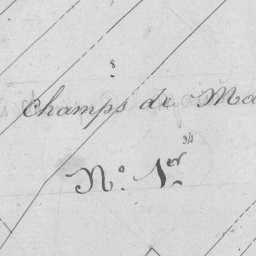 Champs de Ma
34
N.º 1.er